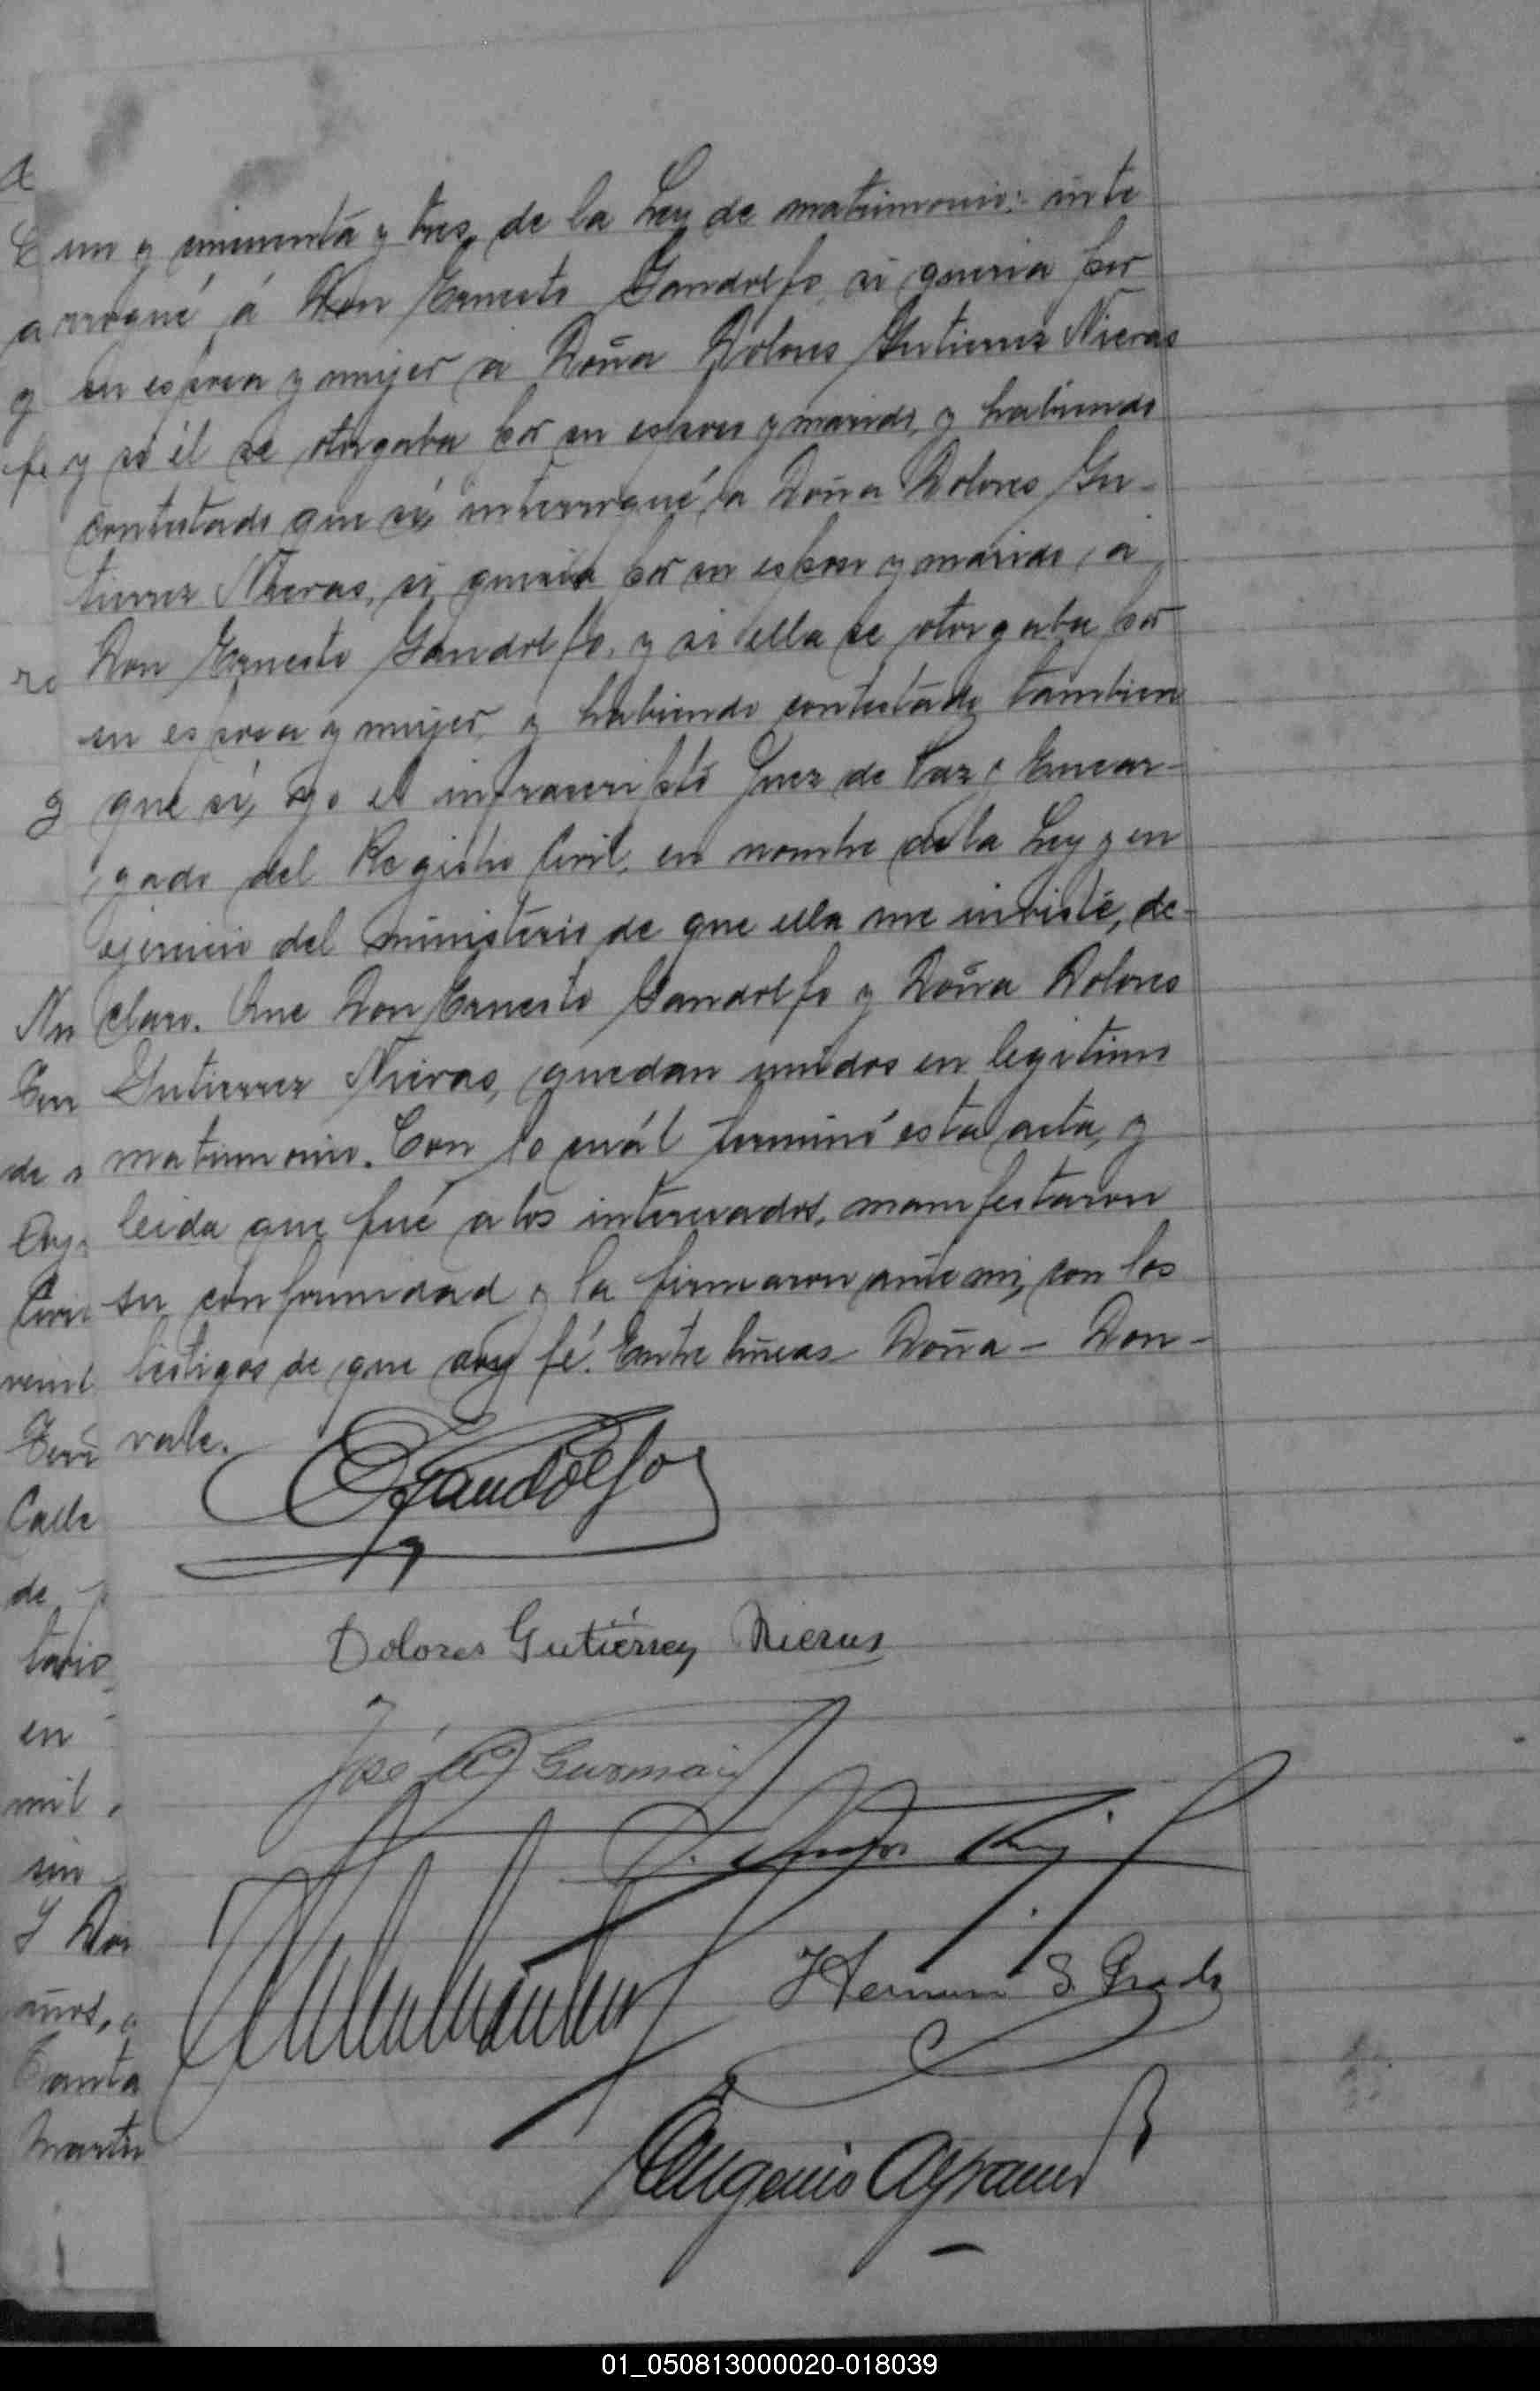 un y cincuenta y tres, de la Ley de matrimonio: inte
rrogué á Don Ernesto Gandolfo si queria por
su esposa y mujer a Doña Dolores Gutierrez Nieras
y si él se otorgaba por su esposo y marido, y habiendo
contestado que sí, interrogué a Doña Dolores Gu-
tierrez Nieras, si queria por su esposo y marido, á
Don Ernesto Gandolfo, y si ella se otorgaba por
su esposa y mujer, y habiendo contestado tambien
que sí, yo el infrascripto Juez de Paz y Encar-
gado del Registro Civil, en nombre de la Ley y en
ejercicio del ministerio de que ella me inviste, de-
claro. Que Don Ernesto Gandolfo y Doña Dolores
Gutierrez Nieras, quedan unidos en legitimo
matrimonio. Con lo cuál terminó esta acta, y
leida que fué a los interesados, manifestaron
su conformidad y la firmaron ante mi, con los
testigos de que doy fé. Entre lineas - Doña - Don -
vale.
EGandolfo
Dolores Gutiérrez Nieras
José A. Guzmain
Hernan S. Prado
Eugenio
de
Calle
tario
en
mil
sin
años,
01_050813000020-018039